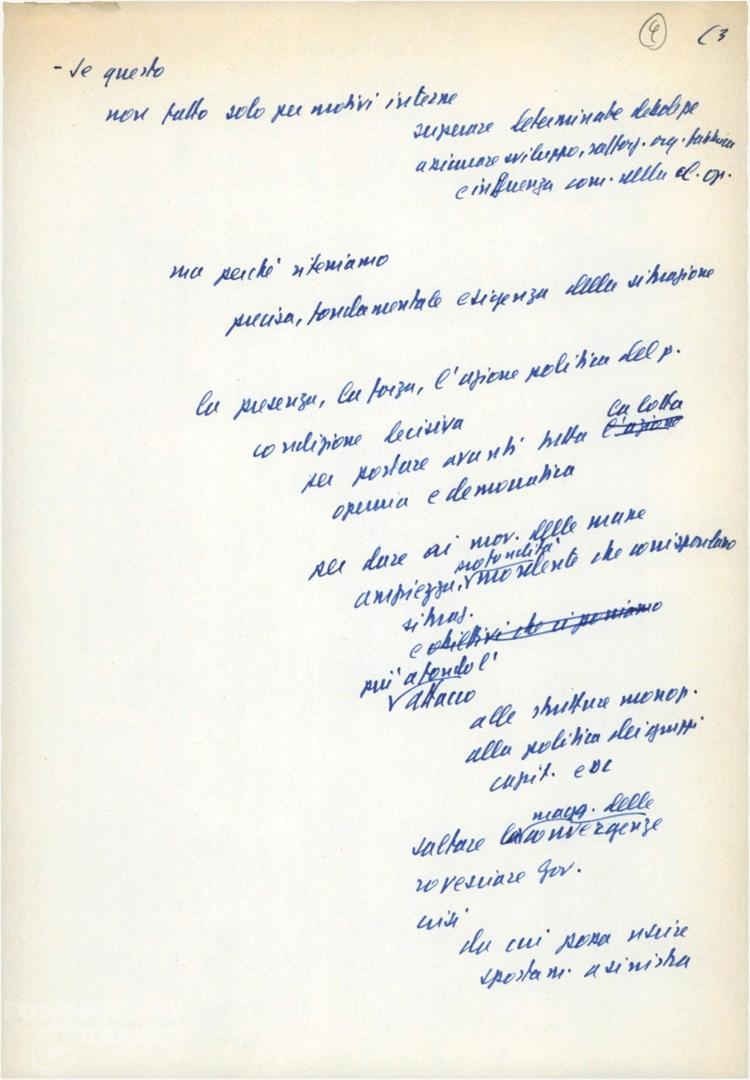 ④ (3
- Se questo
non fatto solo per motivi interni
superare determinate debolezze
assicurare sviluppo, rafforz. org. fabbrica
e influenza com. nella cl. op.
ma perché riteniamo
precisa, fondamentale esigenza della situazione
la presenza, la forza, l'azione politica del p.
condizione decisiva
per portare avanti tutta l'azione la lotta
operaia e democratica
per dare ai mov. delle masse
ampiezza, profondità mordente che corrispondano
situaz.
e obiettivi che ci poniamo
più a fondo l'
attacco
alle strutture monop.
alla politica dei gruppi
capit. e DC
saltare la magg. delle convergenze
rovesciare gov.
crisi
da cui possa uscire
spostam. a sinistra
FONDAZIONE